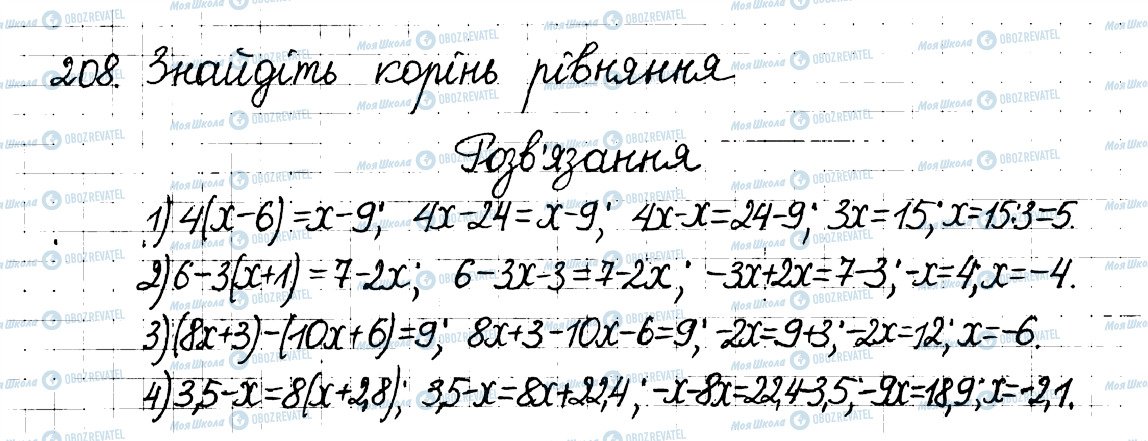 208. Знайдіть корінь рівняння
Розв'язання
1) 4(x-6)=x-9; 4x-24=x-9; 4x-x=24-9; 3x=15; x=15:3=5.
2) 6-3(x+1)=7-2x; 6-3x-3=7-2x; -3x+2x=7-3; -x=4; x=-4.
3) (8x+3)-(10x+6)=9; 8x+3-10x-6=9; -2x=9+3; -2x=12; x=-6.
4) 3,5-x=8(x+2,8); 3,5-x=8x+22,4; -x-8x=22,4-3,5; -9x=18,9; x=-2,1.
Моя Школа OBOZREVATEL